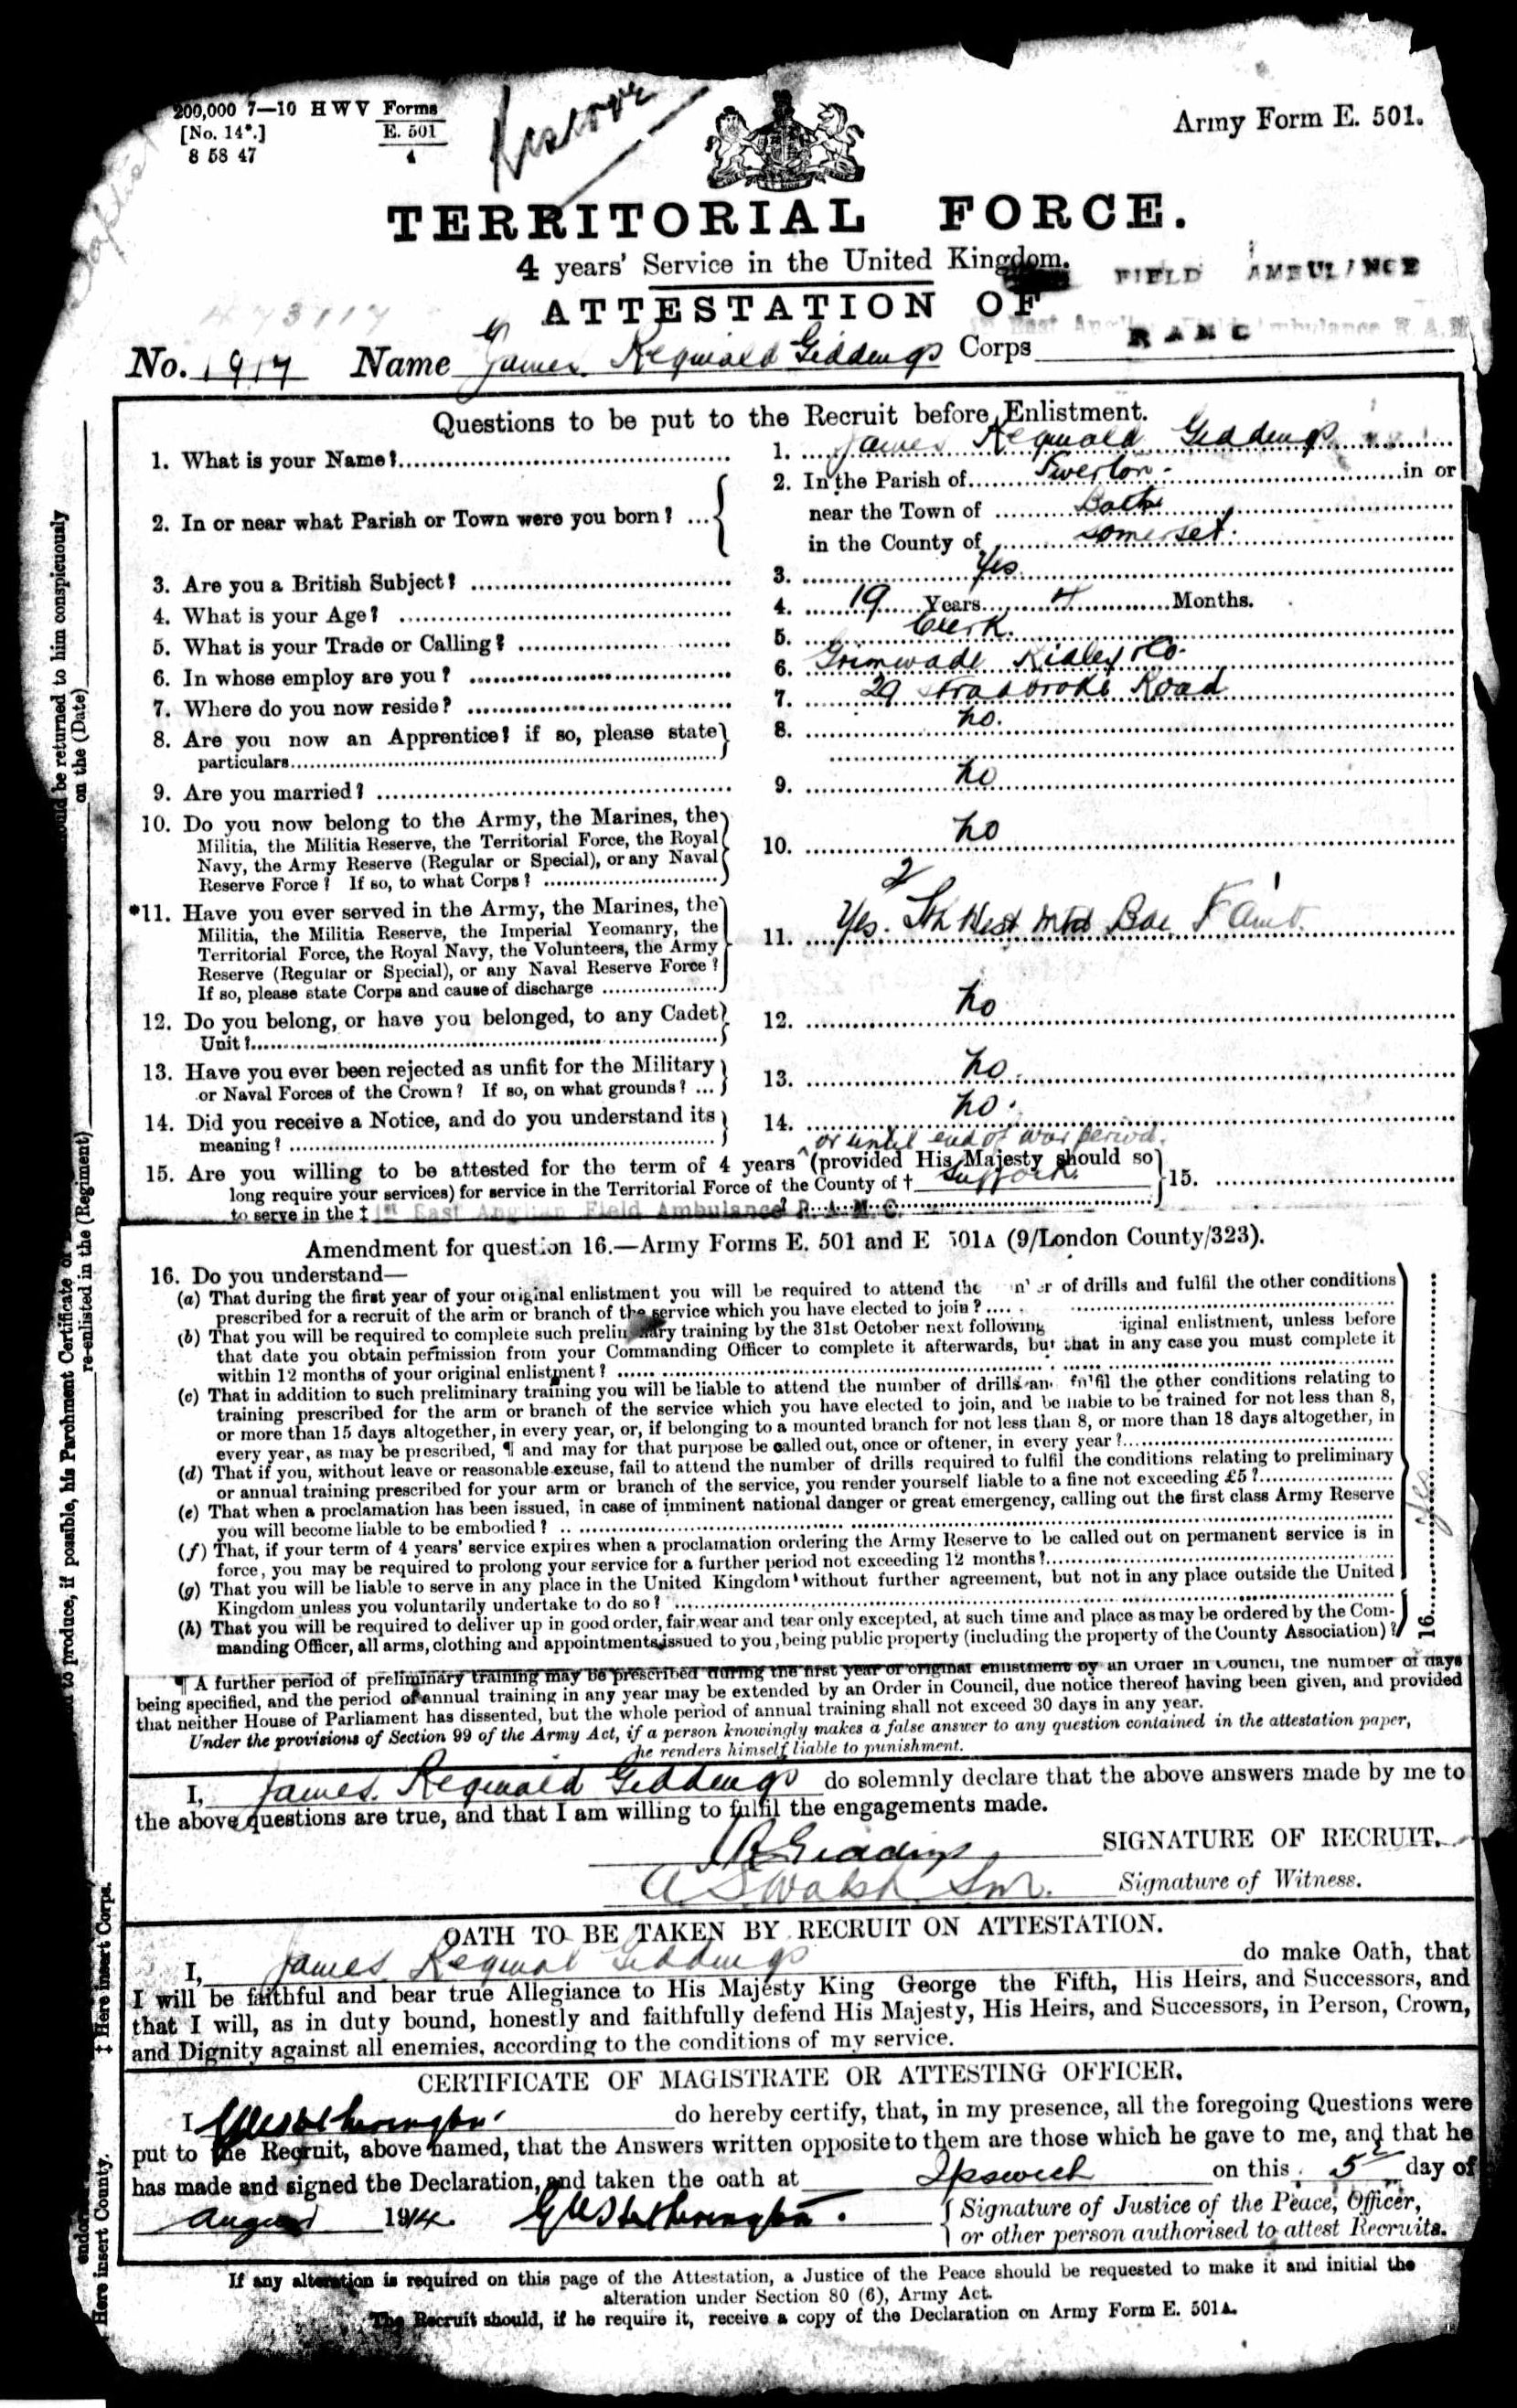 200,000 7—10 H W V Forms
[No. 14*.] E. 501
8 58 47 4
Reserve
Army Form E. 501.
TERRITORIAL FORCE.
4 years' Service in the United Kingdom.
FIELD AMBULANCE
ATTESTATION OF
473117
No. 1917 Name James Reginald Giddings Corps R A M C
Questions to be put to the Recruit before Enlistment.
1. What is your Name? 1. James Reginald Giddings
2. In or near what Parish or Town were you born? 2. In the Parish of Twerton in or
near the Town of Bath
in the County of Somerset.
3. Are you a British Subject? 3. Yes
4. What is your Age? 4. 19 Years 4 Months.
5. What is your Trade or Calling? 5. Clerk.
6. In whose employ are you? 6. Grimwade Ridley & Co.
7. Where do you now reside? 7. 29 Stradbroke Road
8. Are you now an Apprentice? if so, please state 8. no.
particulars
9. Are you married? 9. no
10. Do you now belong to the Army, the Marines, the
Militia, the Militia Reserve, the Territorial Force, the Royal
Navy, the Army Reserve (Regular or Special), or any Naval 10. no
Reserve Force? If so, to what Corps?
2
*11. Have you ever served in the Army, the Marines, the
Militia, the Militia Reserve, the Imperial Yeomanry, the
Territorial Force, the Royal Navy, the Volunteers, the Army 11. Yes. Sth West Mtd Bde F Amb.
Reserve (Regular or Special), or any Naval Reserve Force?
If so, please state Corps and cause of discharge
12. Do you belong, or have you belonged, to any Cadet 12. no
Unit?
13. Have you ever been rejected as unfit for the Military 13. no
or Naval Forces of the Crown? If so, on what grounds?
14. Did you receive a Notice, and do you understand its 14. no.
meaning?
or until end of war period.
15. Are you willing to be attested for the term of 4 years (provided His Majesty should so
long require your services) for service in the Territorial Force of the County of † Suffolk. 15.
to serve in the ‡ 1st East Anglian Field Ambulance R.A.M.C. ?
Amendment for question 16.—Army Forms E. 501 and E 501A (9/London County/323).
16. Do you understand—
(a) That during the first year of your original enlistment you will be required to attend the of drills and fulfil the other conditions
prescribed for a recruit of the arm or branch of the service which you have elected to join?
(b) That you will be required to complete such preliminary training by the 31st October next following iginal enlistment, unless before
that date you obtain permission from your Commanding Officer to complete it afterwards, but that in any case you must complete it
within 12 months of your original enlistment?
(c) That in addition to such preliminary training you will be liable to attend the number of drills an fulfil the other conditions relating to
training prescribed for the arm or branch of the service which you have elected to join, and be liable to be trained for not less than 8,
or more than 15 days altogether, in every year, or, if belonging to a mounted branch for not less than 8, or more than 18 days altogether, in
every year, as may be prescribed, ¶ and may for that purpose be called out, once or oftener, in every year?
(d) That if you, without leave or reasonable excuse, fail to attend the number of drills required to fulfil the conditions relating to preliminary
or annual training prescribed for your arm or branch of the service, you render yourself liable to a fine not exceeding £5?
(e) That when a proclamation has been issued, in case of imminent national danger or great emergency, calling out the first class Army Reserve
you will become liable to be embodied?
(f) That, if your term of 4 years' service expires when a proclamation ordering the Army Reserve to be called out on permanent service is in
force, you may be required to prolong your service for a further period not exceeding 12 months?
(g) That you will be liable to serve in any place in the United Kingdom without further agreement, but not in any place outside the United
Kingdom unless you voluntarily undertake to do so?
(h) That you will be required to deliver up in good order, fair wear and tear only excepted, at such time and place as may be ordered by the Com-
manding Officer, all arms, clothing and appointments issued to you, being public property (including the property of the County Association)?
16. Yes
¶ A further period of preliminary training may be prescribed during the first year of original enlistment by an Order in Council, the number of days
being specified, and the period of annual training in any year may be extended by an Order in Council, due notice thereof having been given, and provided
that neither House of Parliament has dissented, but the whole period of annual training shall not exceed 30 days in any year.
Under the provisions of Section 99 of the Army Act, if a person knowingly makes a false answer to any question contained in the attestation paper,
he renders himself liable to punishment.
I, James Reginald Giddings do solemnly declare that the above answers made by me to
the above questions are true, and that I am willing to fulfil the engagements made.
J R Giddings SIGNATURE OF RECRUIT.
A S Walsh Signature of Witness.
OATH TO BE TAKEN BY RECRUIT ON ATTESTATION.
I, James Reginal Giddings do make Oath, that
I will be faithful and bear true Allegiance to His Majesty King George the Fifth, His Heirs, and Successors, and
that I will, as in duty bound, honestly and faithfully defend His Majesty, His Heirs, and Successors, in Person, Crown,
and Dignity against all enemies, according to the conditions of my service.
CERTIFICATE OF MAGISTRATE OR ATTESTING OFFICER.
I do hereby certify, that, in my presence, all the foregoing Questions were
put to the Recruit, above named, that the Answers written opposite to them are those which he gave to me, and that he
has made and signed the Declaration, and taken the oath at Ipswich on this 5 day of
August 1914. Signature of Justice of the Peace, Officer,
or other person authorised to attest Recruits.
If any alteration is required on this page of the Attestation, a Justice of the Peace should be requested to make it and initial the
alteration under Section 80 (6), Army Act.
The Recruit should, if he require it, receive a copy of the Declaration on Army Form E. 501A.
be returned to him conspicuously
on the (Date)
to produce, if possible, his Parchment Certificate of
re-enlisted in the (Regiment)
‡ Here insert Corps.
Here insert County.